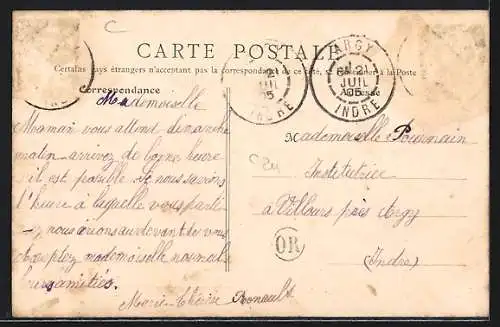 C
CARTE POSTALE
Certains pays étrangers n'acceptent pas la correspondance de ce côté, se renseigner à la Poste
Correspondance
Adresse
ARGY
21
JUIL
05
INDRE
21
JUIL
05
INDRE
Mademoiselle
Maman vous attend dimanche
matin arrivez de bonne heure
s'il est possible Si nous savions
l'heure à laquelle vous parti
nous irions au devant de vous
mademoiselle nos meil
amitiés.
Marie-Thérèse Renault
Mademoiselle
Institutrice
à Villours près Argy
(Indre)
OR